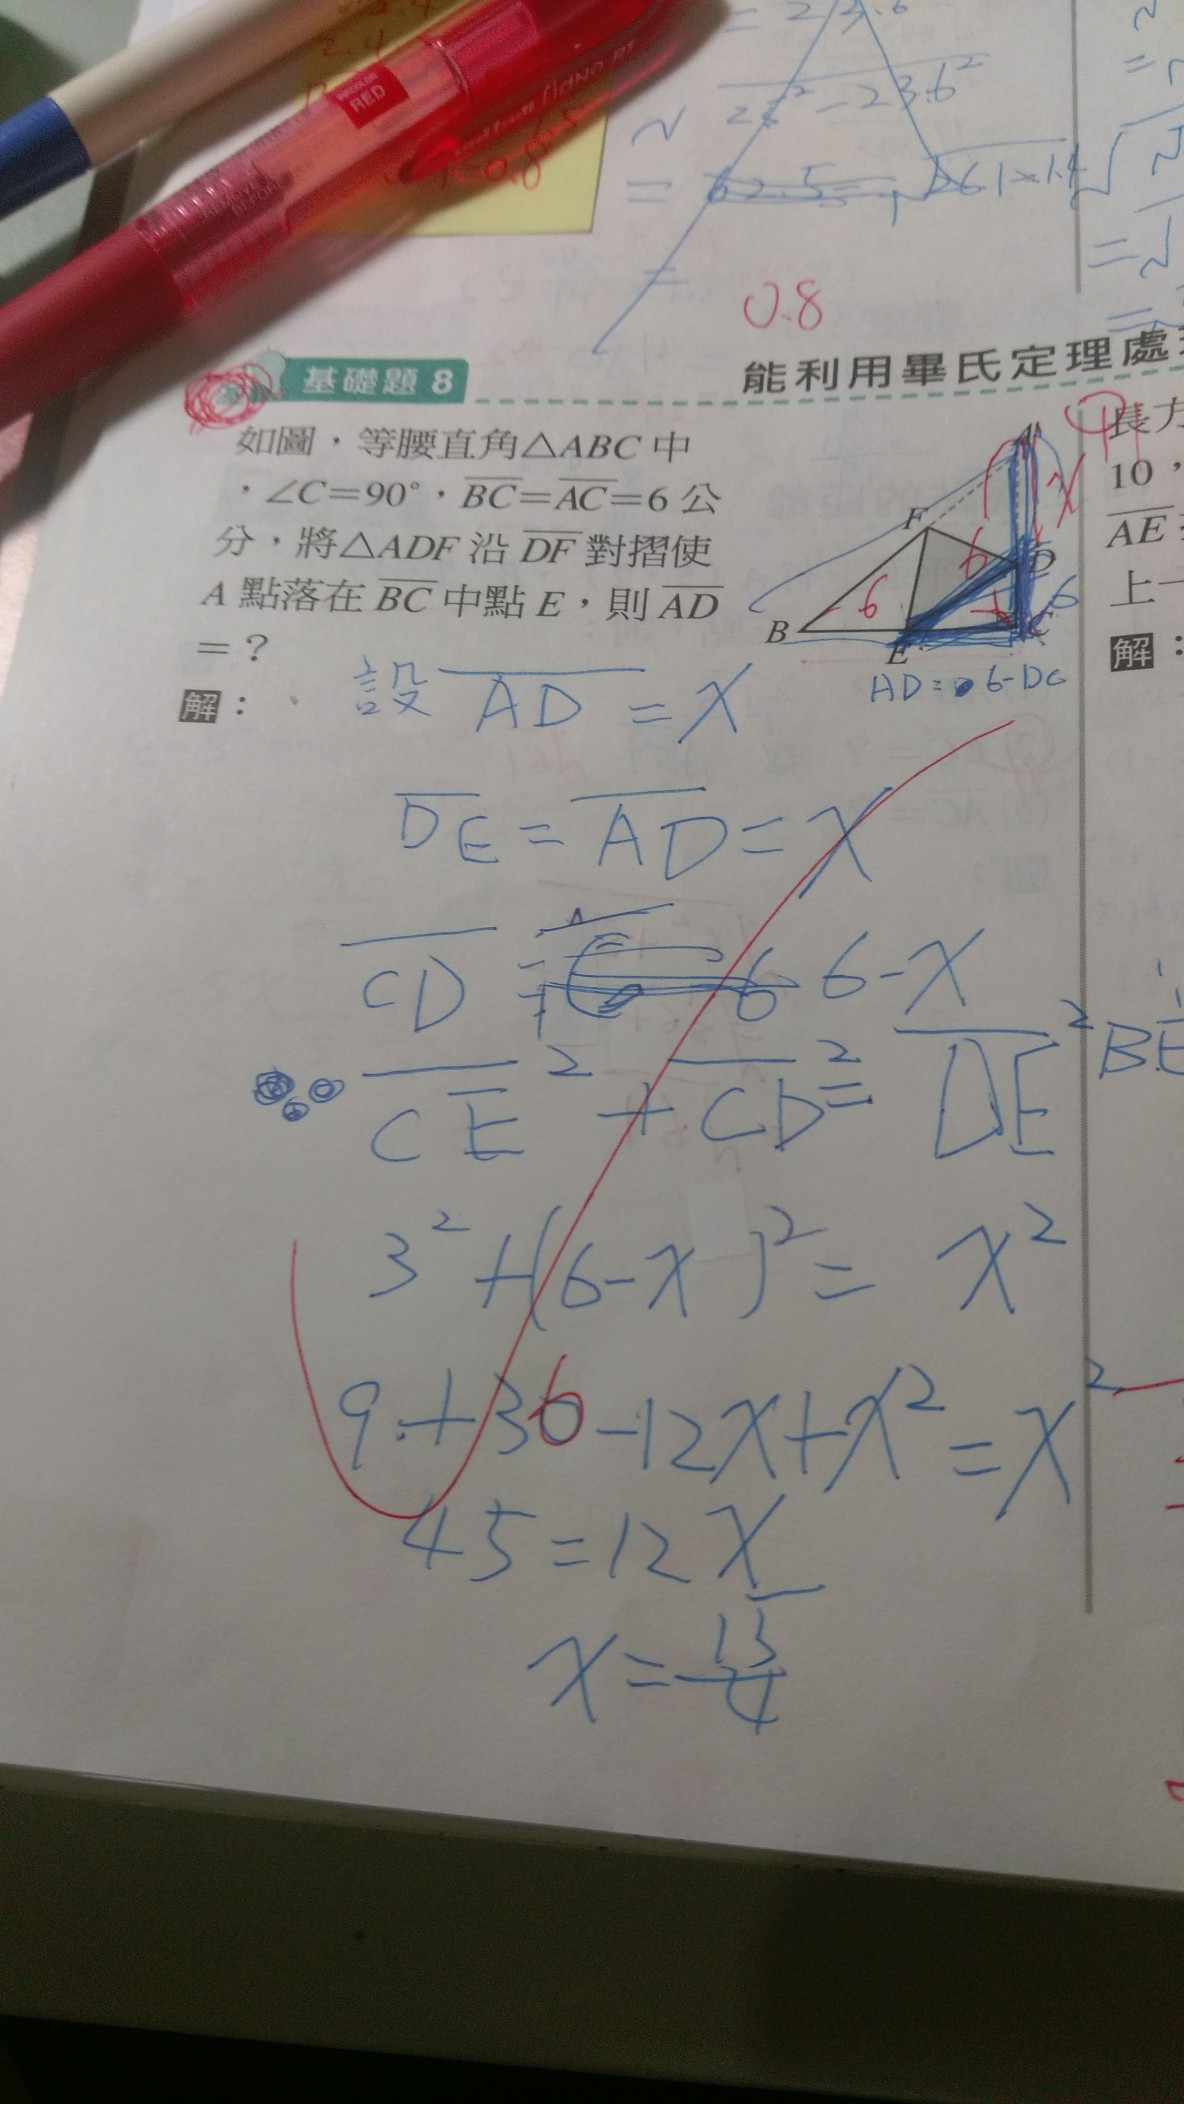 RED
0.8
= 23.6
25² - 23.6²
=
0.8
基礎題 8
能利用畢氏定理處
如圖，等腰直角△ABC 中
，∠C=90°，BC=AC=6 公
分，將△ADF 沿 DF 對摺使
A 點落在 BC 中點 E，則 AD
=？
解：
A
F
D
B
E
C
x
6
6
6
AD = 6-DC
設 AD = x
DE = AD = x
CD = 6-x
CE² + CD² = DE²
3² + (6-x)² = x²
9 + 36 - 12x + x² = x²
45 = 12x
x = 15/4
長方
10，
AE
上一
解：
BE